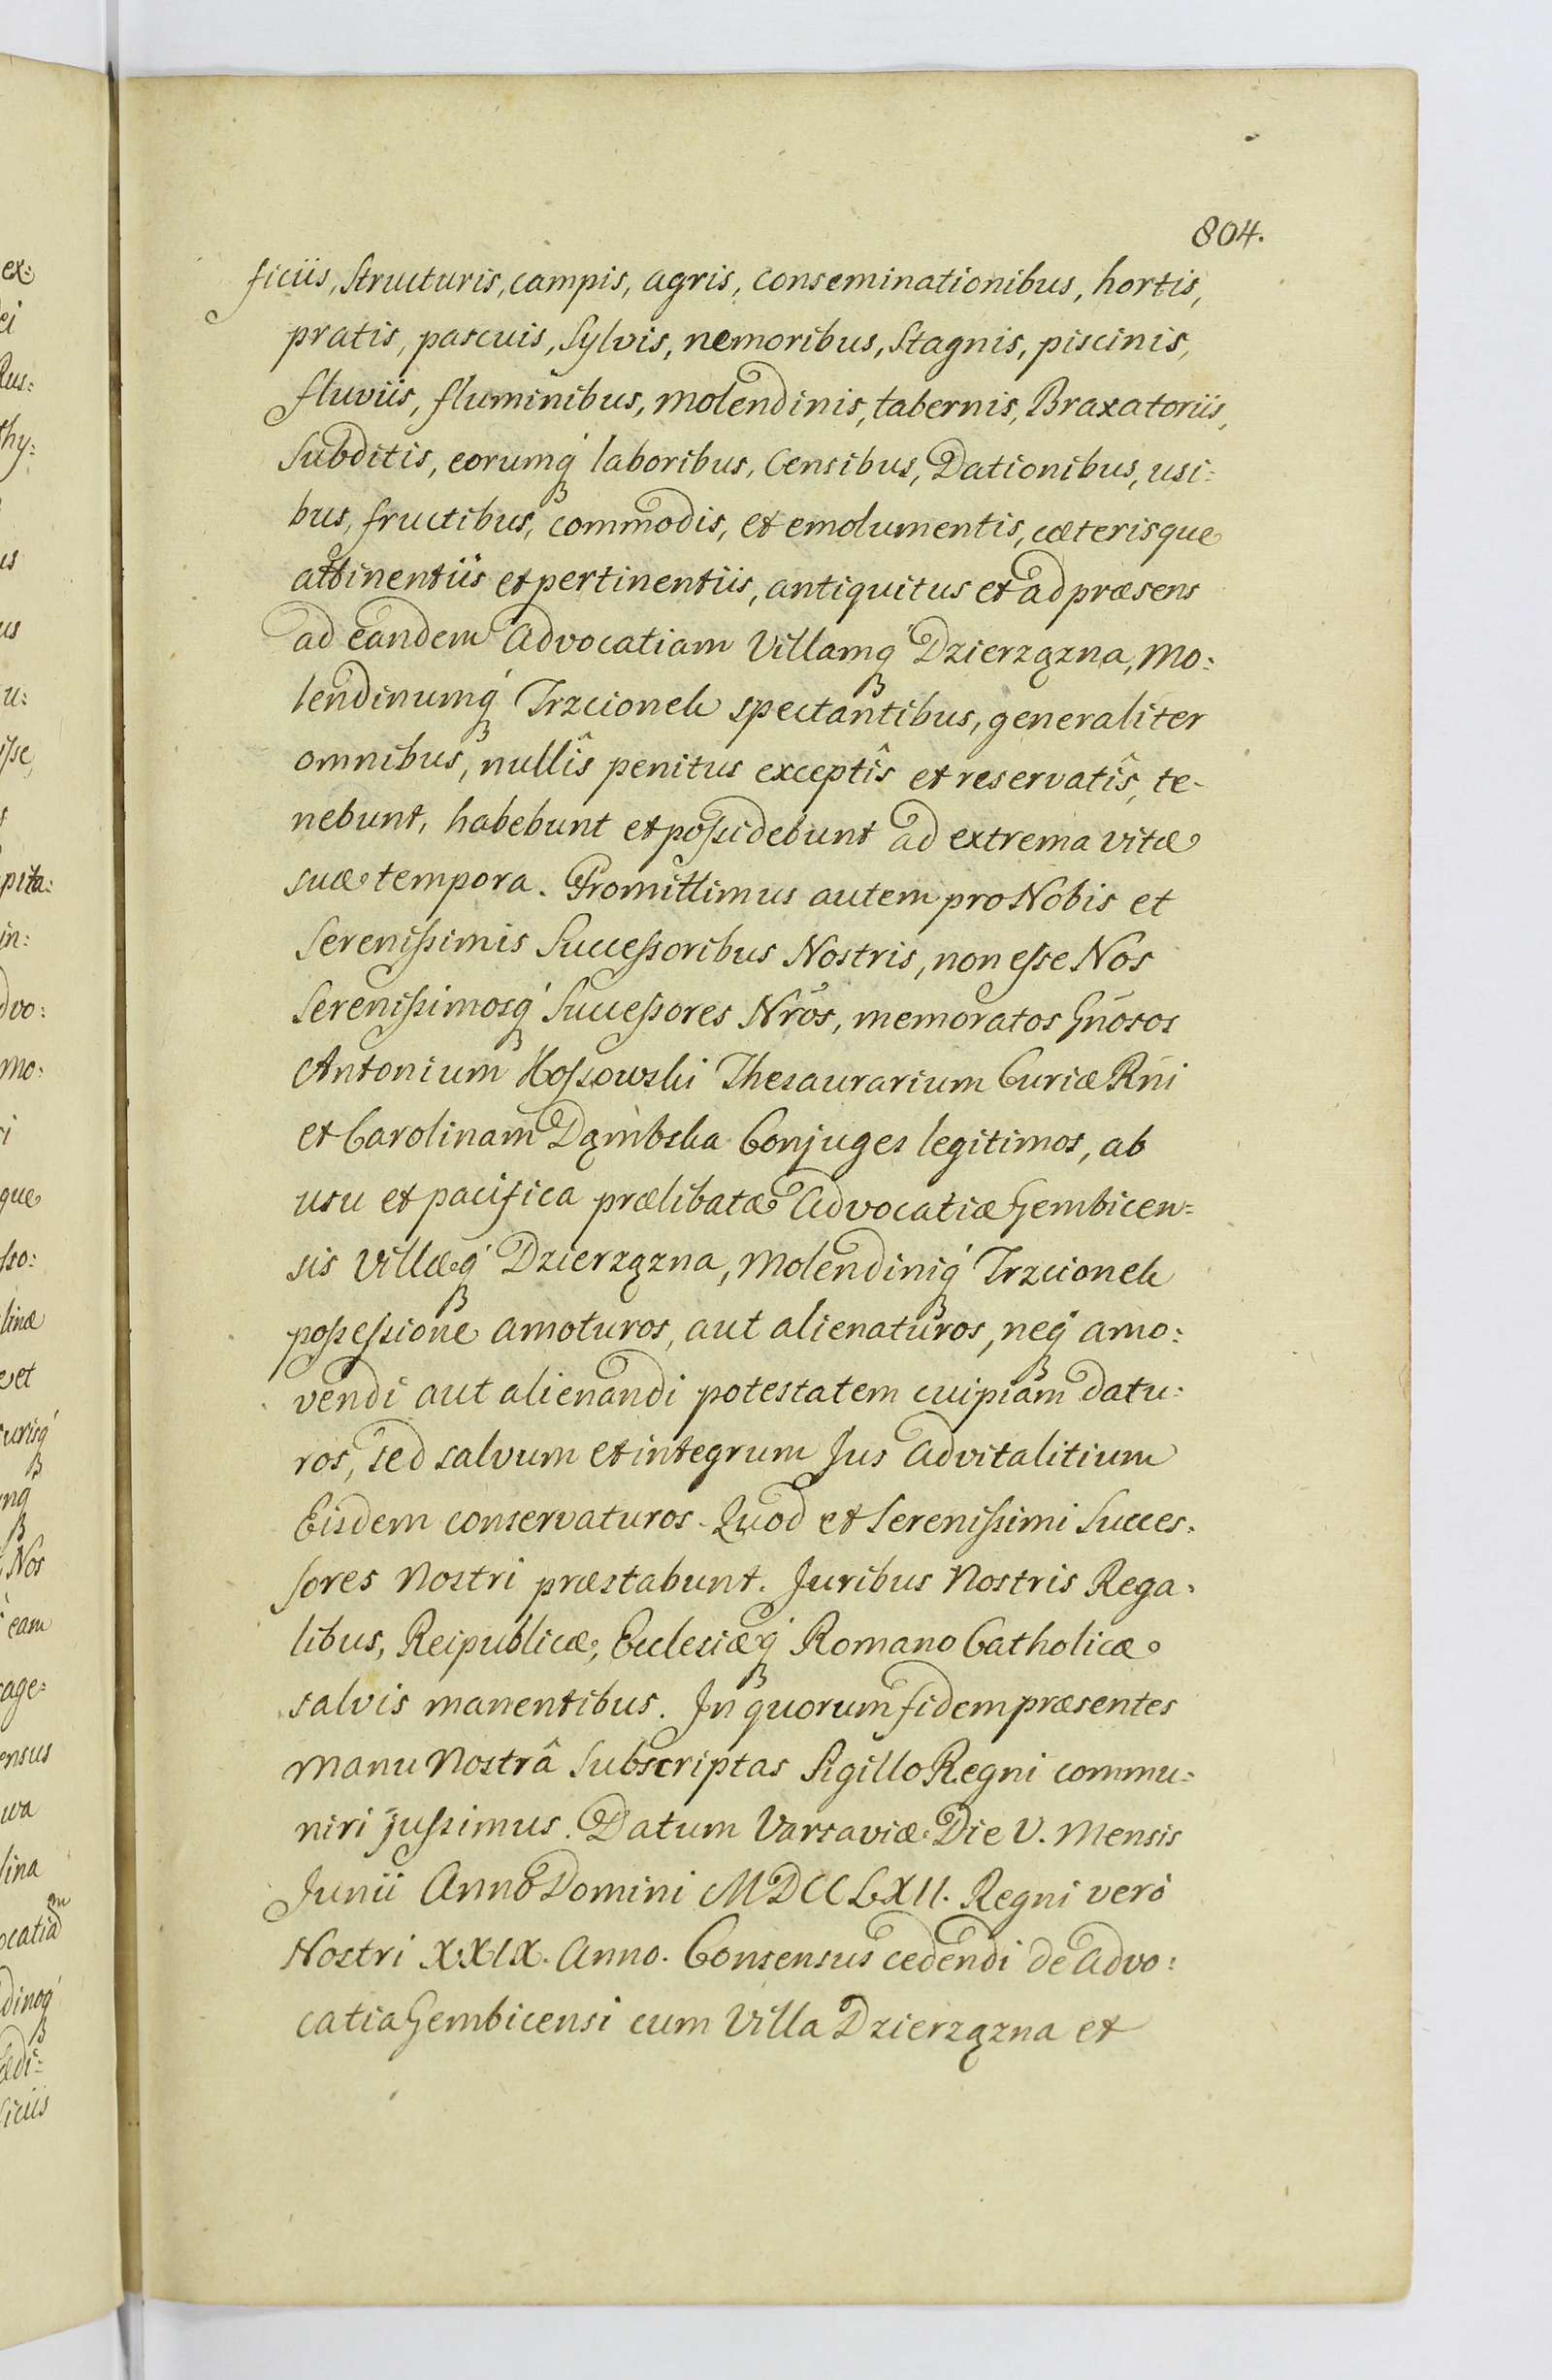 804.
ficiis, Structuris, campis, agris, conseminationibus, hortis,
pratis, pascuis, Sylvis, nemoribus, Stagnis, piscinis,
fluviis, fluminibus, molendinis, tabernis, Braxatoriis,
Subditis, eorumq́ꝫ laboribus, Censibus, Dationibus, usi:
bus, fructibus, commodis, et emolumentis, cæterisque
attinentiis et pertinentiis, antiquitus et ad præsens
ad eandem Advocatiam Villamq́ꝫ Dzierzązna, Mo:
lendinumq́ꝫ Trzcionek spectantibus, generaliter
omnibus, nullîs penitus exceptîs et reservatîs, te-
nebunt, habebunt et poſsidebunt ad extrema vitæ
suæ tempora. Promittimus autem pro Nobis et
Sereniſsimis Succeſsoribus Nostris, non eſse Nos
Sereniſsimosq́ꝫ Succeſsores Nr̃os, memoratos Gñosos
Antonium Koſsowski Thesaurarium Curiæ Rñi
et Carolinam Dąmbska Conjuges legitimos, ab
usu et pacifica prælibatæ Advocatiæ Gembicen=
sis Villæq́ꝫ Dzierzązna, Molendiniq́ꝫ Trzcionek
poſseſsione amoturos, aut alienaturos, neq́ꝫ amo:
vendi aut alienandi potestatem cuipiam datu:
ros, sed salvum et integrum Jus Advitalitium
Eisdem conservaturos. Quod et Sereniſsimi Succes:
sores Nostri præstabunt. Juribus Nostris Rega:
libus, Reipublicæ, Ecclesiæq́ꝫ Romano Catholicæ
salvis manentibus. In quorum fidem præsentes
Manu Nostrâ Subscriptas Sigillo Regni commu=
niri juſsimus. Datum Varsaviæ Die V. Mensis
Junii Anno Domini MDCCLXII. Regni verò
Nostri XXIX. Anno. Consensus cedendi de Advo:
catia Gembicensi cum Villa Dzierzązna et
ex:
ei
Rus:
thy:
us
us
u:
iſse,
pita:
in:
dvo:
mo:
que
sso:
linæ
et
urisq́ꝫ
mq́ꝫ
Nos
eam
age=
ensus
wa
lina
ocatiam
dinoq́ꝫ
ædi=
ficiis